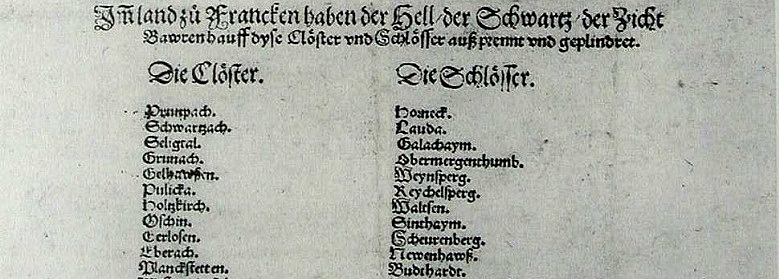 Jn̄ land zů Francken haben der Hell / der Schwartz / der Zicht
Bawrenhauff dyse Clöster vnd Schlösser auß prennt vnd geplindret.
Die Clöster.
Prumpach.
Schwartzach.
Seligtal.
Grunach.
Gelhawsen.
Pulicka.
Holtzkirch.
Oschin.
Eerlosen.
Eberach.
Planckstetten.
Die Schlösser.
Horneck.
Lauda.
Galachaym.
Obermergenthumb.
Weynsperg.
Reychelsperg.
Waltsen.
Sinthaym.
Scheurenberg.
Newenhawß.
Budthardt.